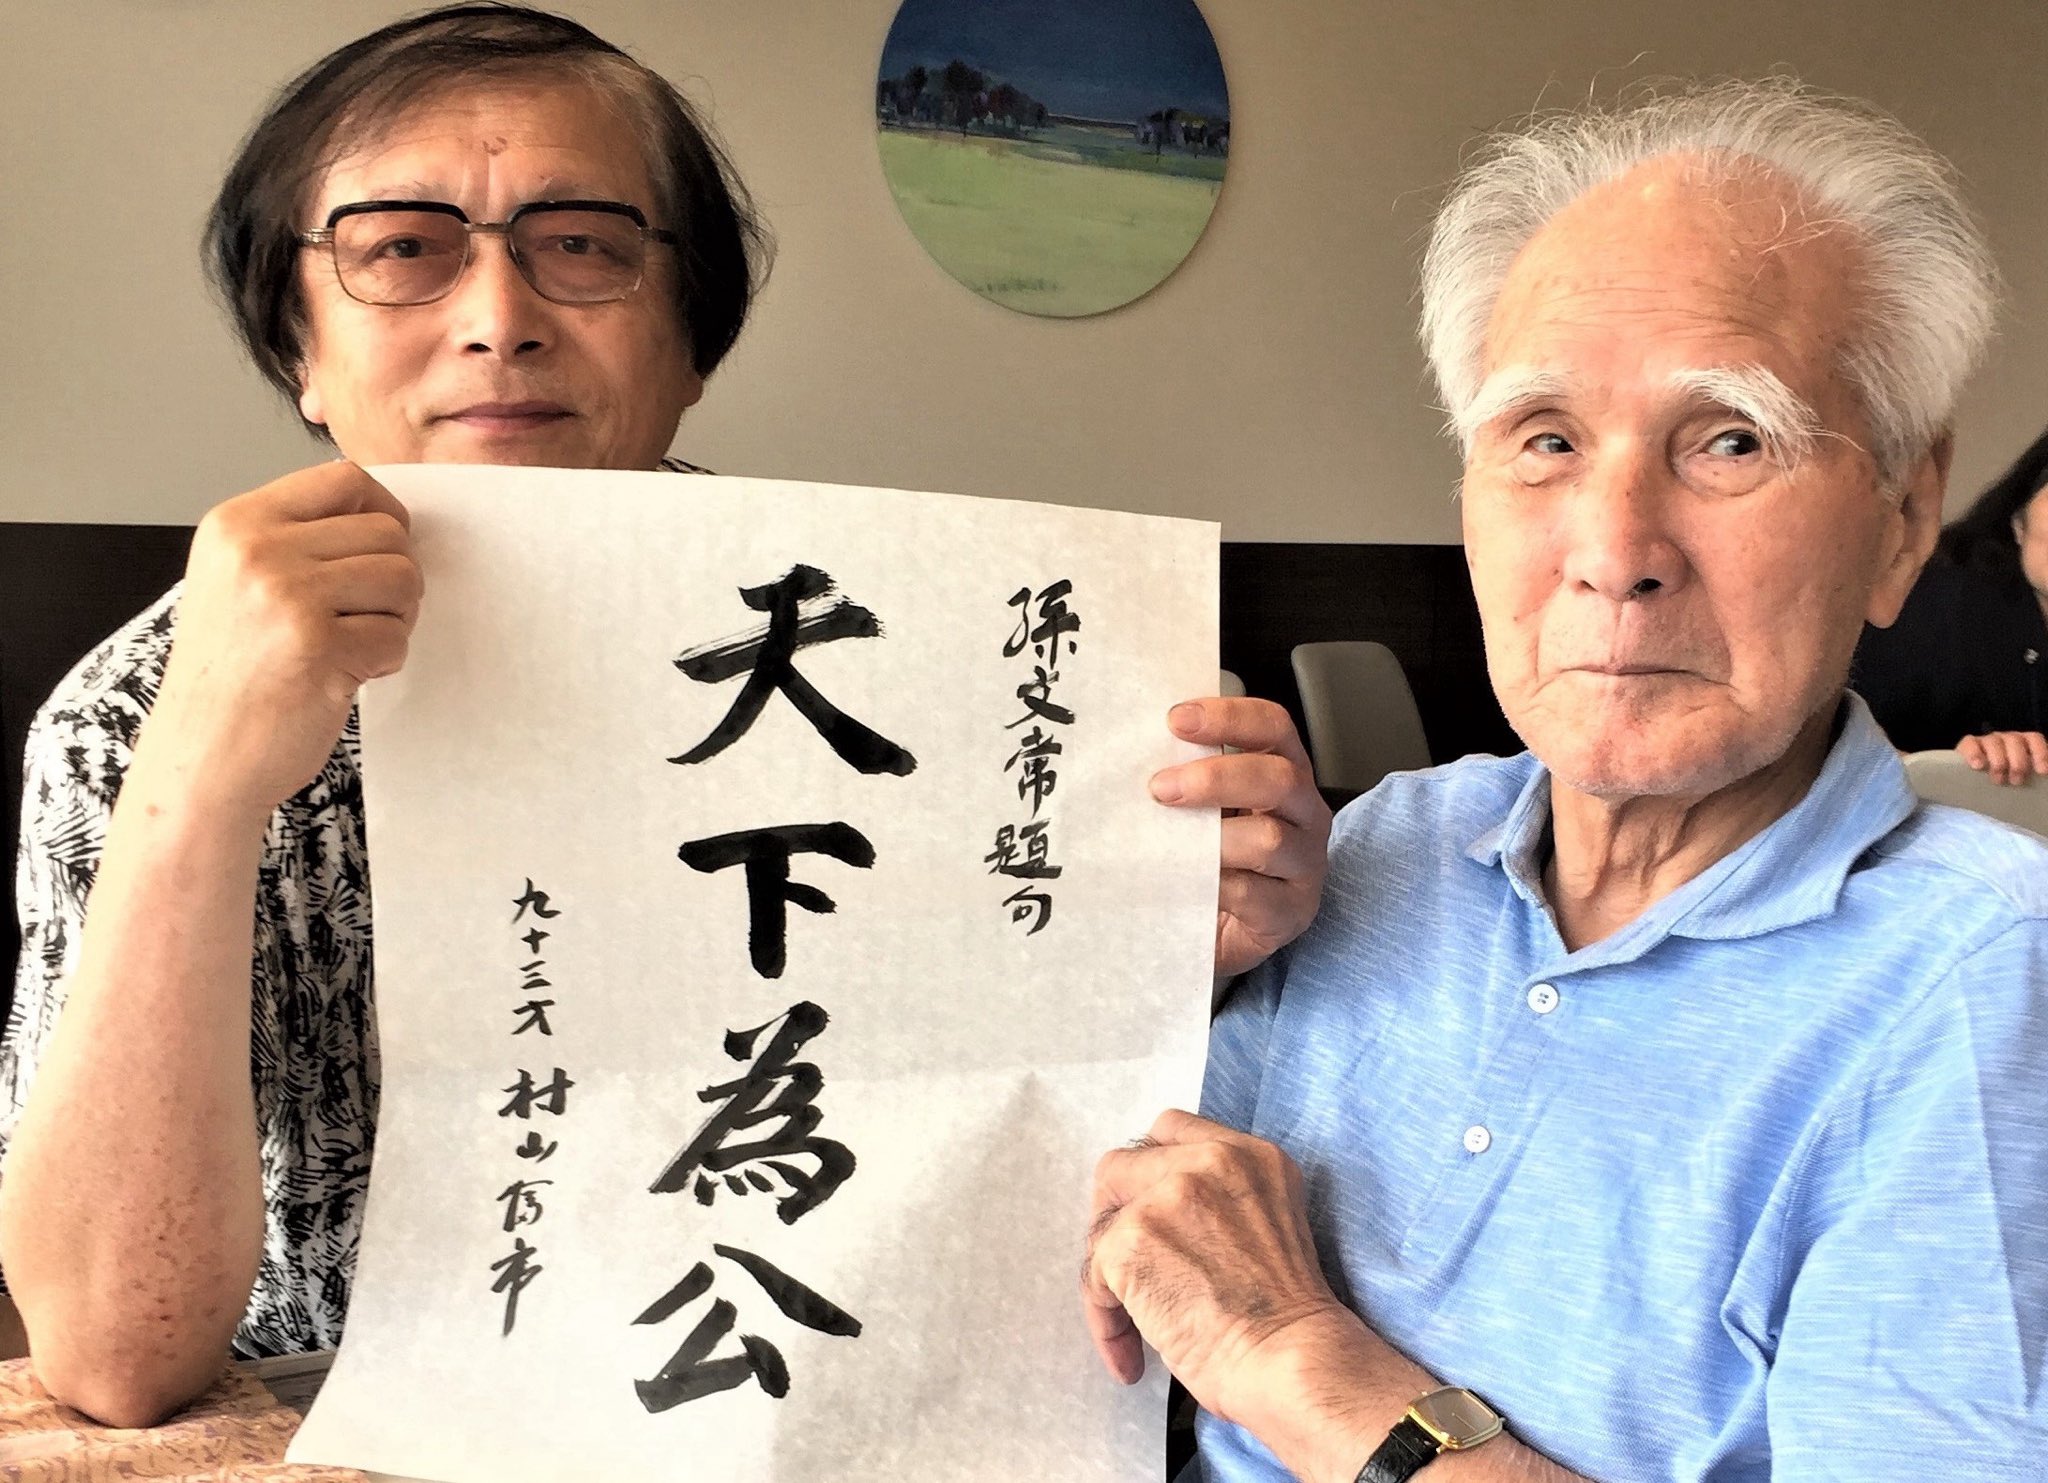 孫文常題句
天下為公
九十三才 村山富市